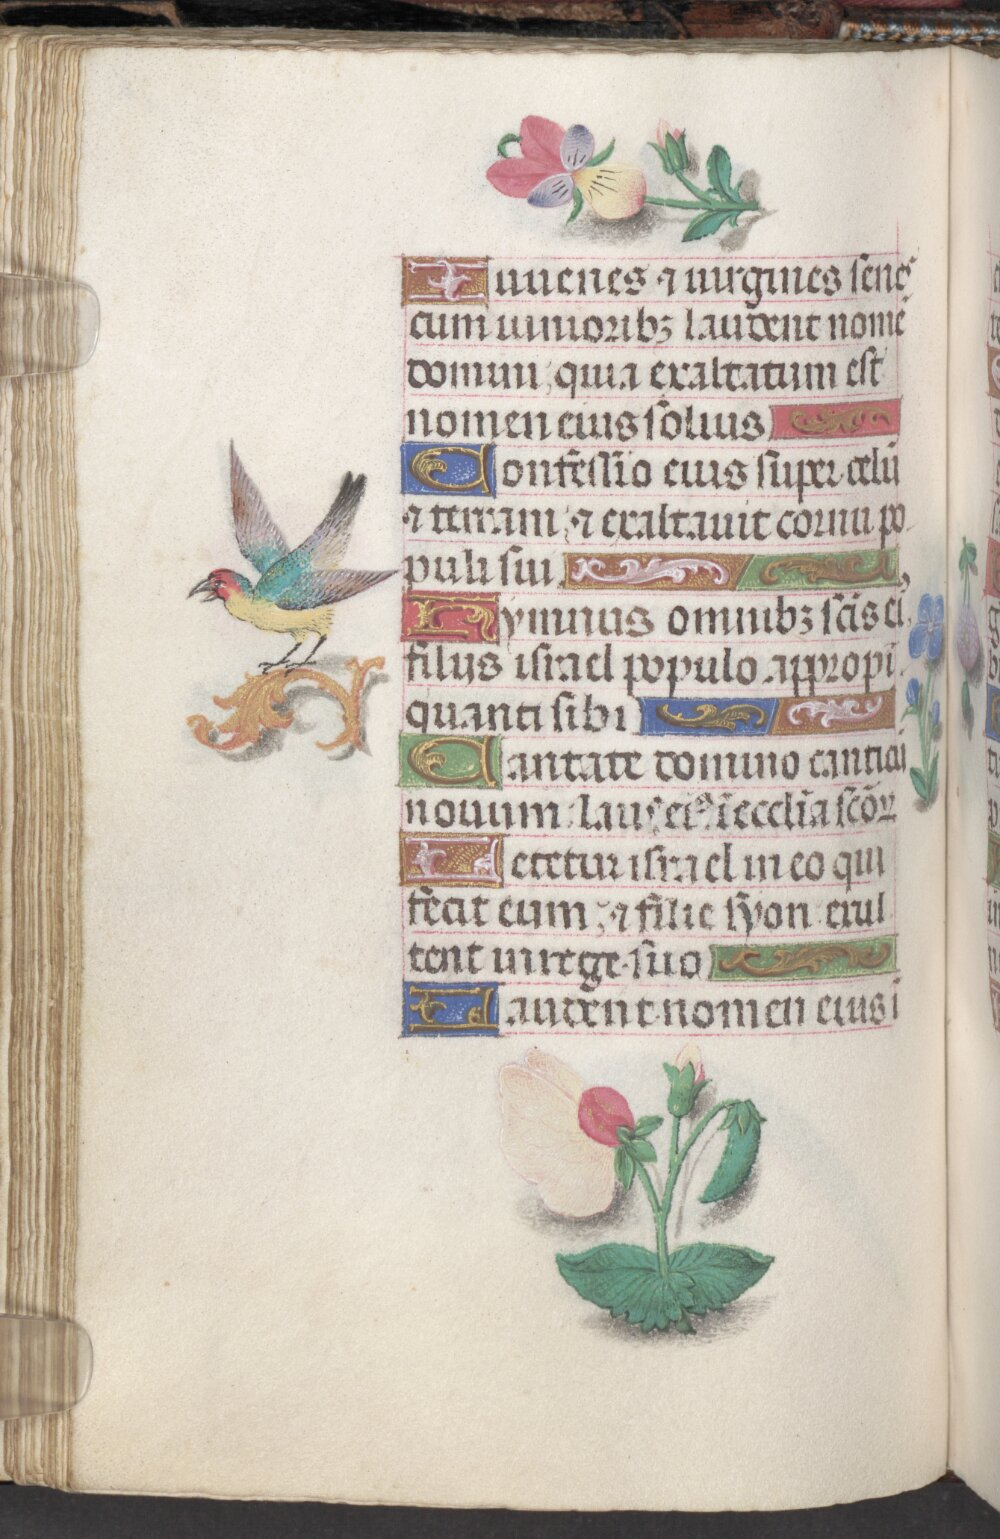 Iuuenes ⁊ uirgines senes
cum iunioribꝫ laudent nomē
domini, quia exaltatum est
nomen eius solius
Confessio eius super celū
⁊ terram, ⁊ exaltauit cornu po
puli sui
Hymnus omnibꝫ scīs ei,
filijs israel populo appropi
quanti sibi
Cantate domino canticū
nouum laus eiꝰ ī ecclīa scōꝝ
Letetur israel in eo qui
fecit eum, ⁊ filie syon exul
tent in rege suo
Laudent nomen eius ī